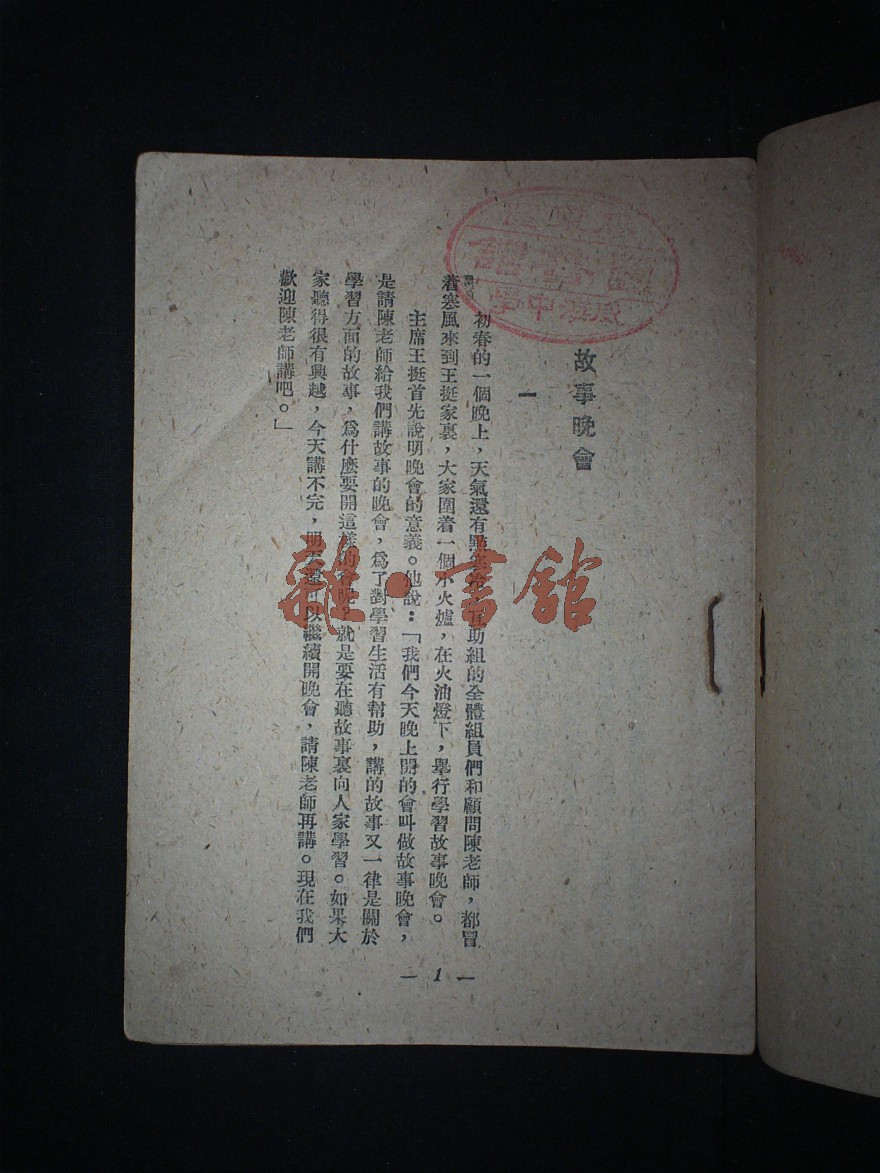 故事晚會
一
初春的一個晚上，天氣還有點寒冷，互助組的全體組員們和顧問陳老師，都冒
着寒風來到王挺家裏，大家圍着一個小火爐，在火油燈下，舉行學習故事晚會。
主席王挺首先說明晚會的意義。他說：「我們今天晚上開的會叫做故事晚會，
是請陳老師給我們講故事的晚會，爲了對學習生活有幫助，講的故事又一律是關於
學習方面的故事，爲什麼要開這樣的會呢？就是要在聽故事裏向人家學習。如果大
家聽得很有興越，今天講不完，明天還可以繼續開晚會，請陳老師再講。現在我們
歡迎陳老師講吧。」
— 1 —
雜·書館